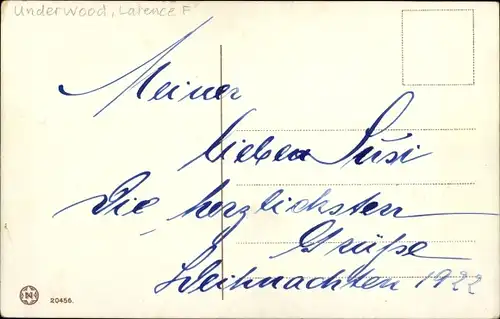 Underwood, Larence F
Meiner
lieben Susi
Die herzlichsten
Grüße
Weihnachten 1922
N
20456.